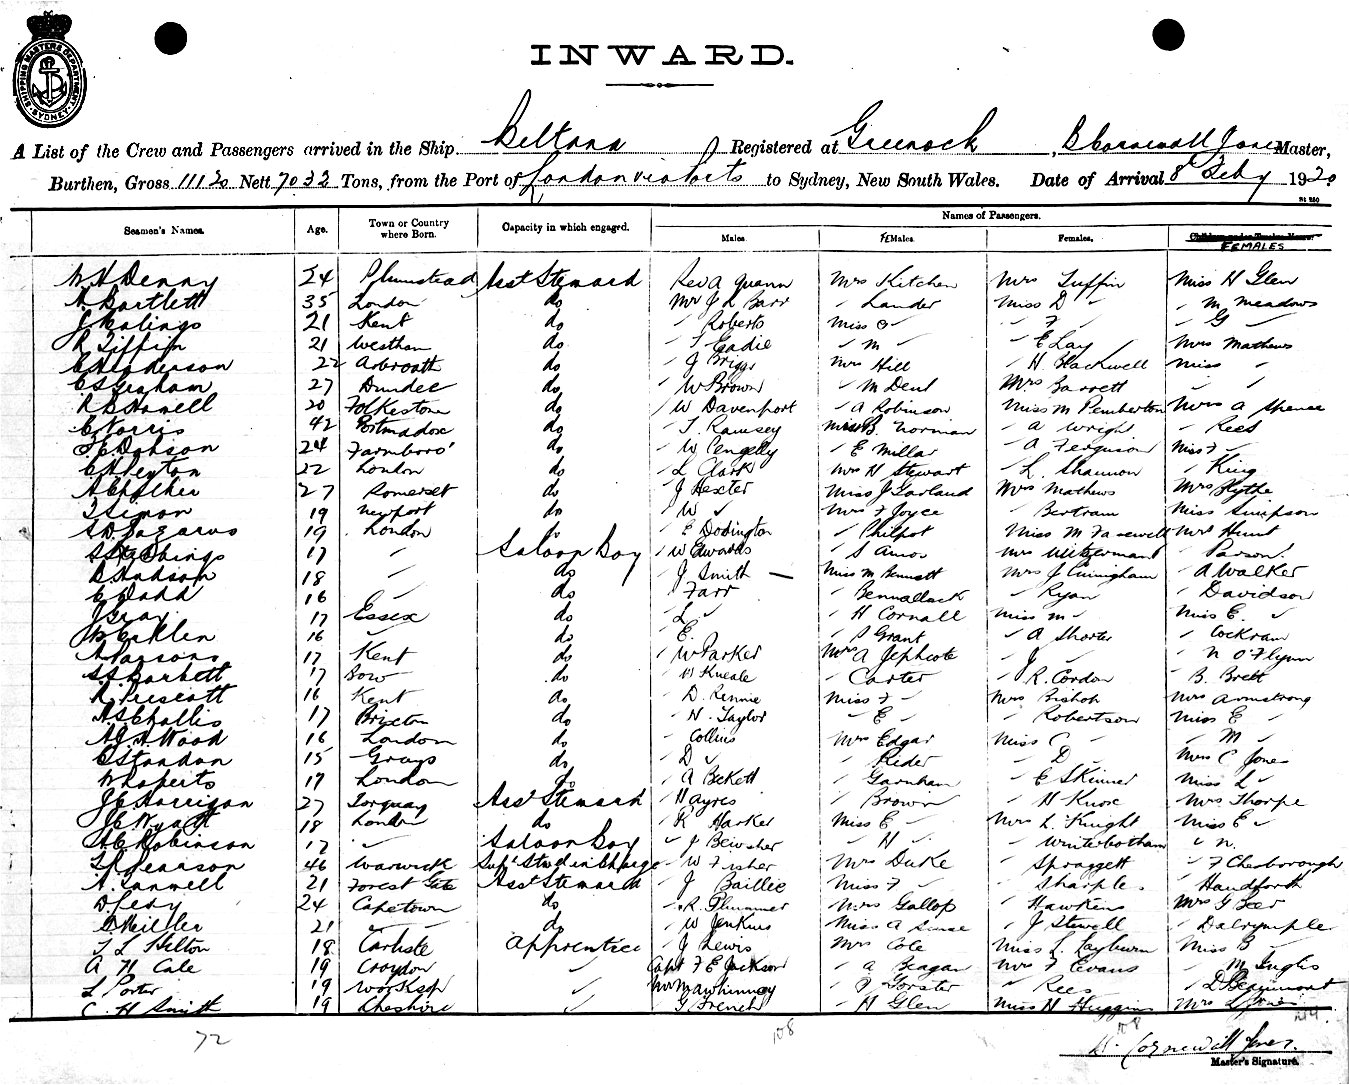 SHIPPING MASTERS DEPARTMENT SYDNEY
INWARD.
A List of the Crew and Passengers arrived in the Ship Beltana Registered at Greenock, B Cornewall Jones Master,
Burthen, Gross 11120 Nett 7032 Tons, from the Port of London via Ports to Sydney, New South Wales. Date of Arrival 8 Feby 1920
Names of Passengers.
Seamen's Names. Age. Town or Country where Born. Capacity in which engaged. Males. FEMales. Females. FEMALES
W H Denny 24 Plumstead Asst Steward Rev A Mrs Kitchen Mrs Tuffin Miss H Glen
A Bartlett 35 London do Mr J L Barr " Lander Miss D " " M Meadows
21 Kent do " Roberts Miss O " " F " " G "
R Tiffin 21 Westham do " T Eadie " M " " E Lay Mrs Mathews
22 Arbroath do " J Briggs Mrs Hill " H Blackwell Miss "
C S Graham 27 Dundee do " W Brown " M Dent Mrs Barrett " "
20 Folkestone do " W Davenport " A Robinson Miss M Pemberton Mrs A Spence
C Norris 42 Portmadoc do " T Ramsey Miss B. Norman " A Wright " Rees
Dobson 24 Farmboro' do " W " E Millar " A Ferguson Miss F "
22 London do " L Clark Mrs H Stewart " L. Shannon " King
27 Somerset do " J Hexter Miss J Garland Mrs Mathews Mrs Blythe
T Simon 19 Newport do " W " Mrs F Joyce " Bertram Miss Simpson
S D Lazarus 19 London do " E Dodington " Philpot Miss M Farewell Mrs Hunt
17 " Saloon Boy " W Edwards " S Amor Mrs
18 " do " J. Smith — Miss M Bennett Mrs J Cunigham " A Walker
C Dodd 16 " do " Farr " Benmallack " Ryan " Davidson
J Gray 17 Essex do " L " " H Cornall Miss M " Miss E. "
16 " do " E. " P Grant " A Shorter " Cockram
A Parsons 17 Kent do " W Parker Mrs A Jephcote " J " " N O'Flynn
17 Bow do " H Kneale " Carter " R. Cordon " B. Brett
R Prescott 16 Kent do " D. Rennie Miss F " Mrs Bishop Mrs Armstrong
A S Challis 17 Brixton do " H. Taylor " E " " Robertson Miss E "
Wood 16 London do " Collins Mrs Edgar Miss C " " M "
15 Grays do " D " " Rider " D " Mrs C Jones
W Roberts 17 London do " A Beckett " Garnham " E Skinner Miss L "
J C Harrigan 27 Torquay Asst Steward " Hayres " Brown " H Knox Mrs Thorpe
J C Wyatt 18 London do " R Harker Miss E " Mrs L. Knight Miss E "
A C Robinson 17 " Saloon Boy " J " H " " Winterbotham " N.
Pearson 46 Warwick Supt Stwd in Charge " W Fisher Mrs Duke " Spraggett " F Chesborough
21 Forest Gate Asst Steward " J Baillie Miss F " " Sharples " Handforth
D Levy 24 Capetown do " R. Plummer Mrs Gallop " Hawkins Mrs G Leer
Miller 21 " do " W Jenkins Miss A " J Stewell " Dalrymple
T L Hilton 18 Carlisle Apprentice " J Lewis Mrs Cole Miss L Layburn Miss B "
A H Cale 19 Croydon " Capt F E Jackson " A Beagan Mrs F Evans " M Inglis
L Porter 19 Worksop " Mr Mawhinney " J Forster " Rees " D Beaumont
C. H Smith 19 Cheshire " " G. French " H Glen Miss N Huggins Mrs L Jones
72 108 108
B. Cornewall Jones.
Master's Signature.